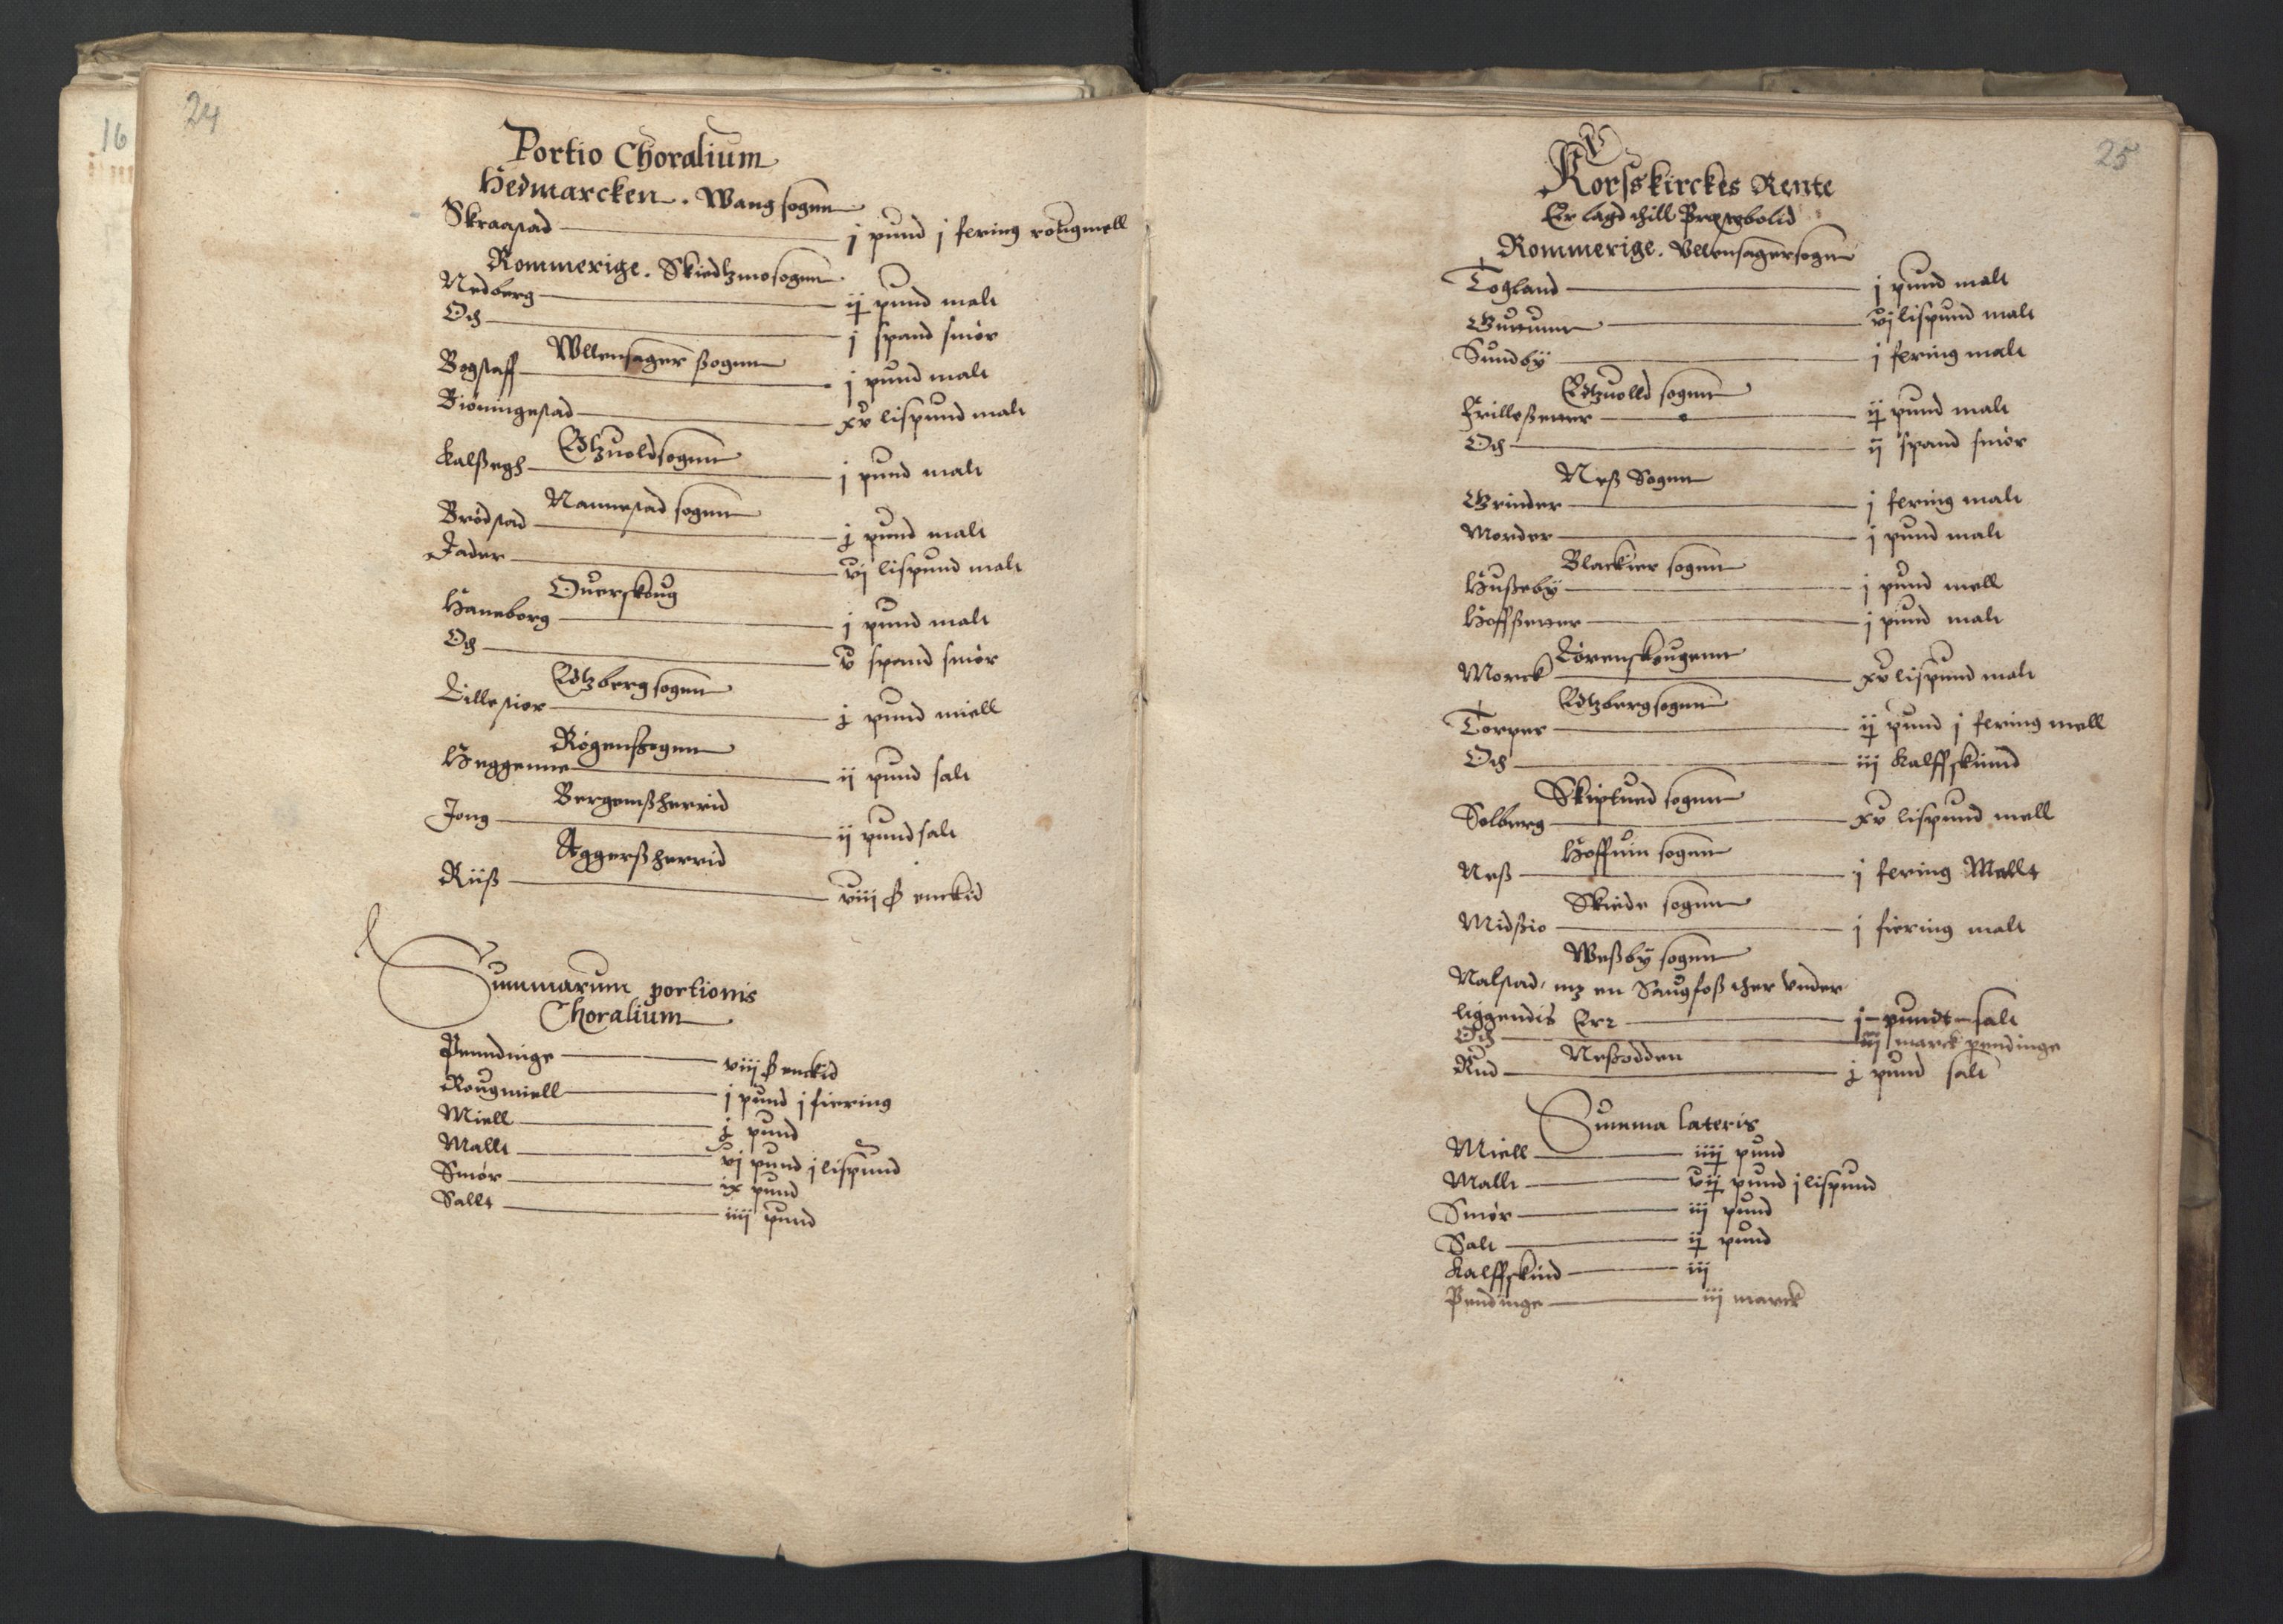 24
16
Portio Choralium
Hedmarcken. Wang sognn
Skraastad j pund j fering rougmell
Rommerige. Skiedtzmosogenn
Nedberg ij pund malt
Och j spand smør
Wllensager ßogenn
Bogstaff j pund malt
Biøningestad xv lispund malt
Edtzuoldsogenn
Kalßegh j pund malt
Nannestad sogenn
Brødstad j pund malt
Jader vj lispund malt
Ouerskoug
Haneborg j pund malt
Och v spand smør
Edtzberg sogenn
Lillestior j pund miell
Røgenßogenn
Heggenne ij pund salt
Bergemßherrid
Jong ij pund salt
Aggerßherrid
Riiß viij ß enckid
Summarum portionis
Choralium
Penndinge viij ß enckid
Rougmiell j pund j fiering
Miell j pund
Mallt vj pund j lispund
Smør ix pund
Sallt iiij pund
25
Korsskirckes Rente
Er lagd thill Prouebolid
Rommerige. Vllensagersogenn
Togland j pund malt
vj lispund malt
Sundby j fering malt
Edtzuolld sogenn
Frilleßetter ij pund malt
Och ij spand smør
Neß Sogenn
Grinder j fering malt
Morder j pund malt
Blackier sogenn
Hußeby j pund mell
Hoffßetter j pund malt
Lørenskougenn
Morck xv lispund malt
Edtzbergsogenn
Torper ij pund j fering mell
Och iij Kalffskiind
Skiptued sogenn
Solberg xv lispund mell
Hoffuin sogenn
Neß j fering Mallt
Skiede sogenn
Midßio j fiering malt
Weßby sogenn
Nalstad, mz en Saugfoß ther vnder
liggendis Err j pundt salt
Och iij marck pendinge
Neßodden
Rud j pund salt
Summa lateris
Miell iiij pund
Mallt vij pund j lispund
Smør iij pund
Salt ij pund
Kalffskind iij
Pendinge iij marck